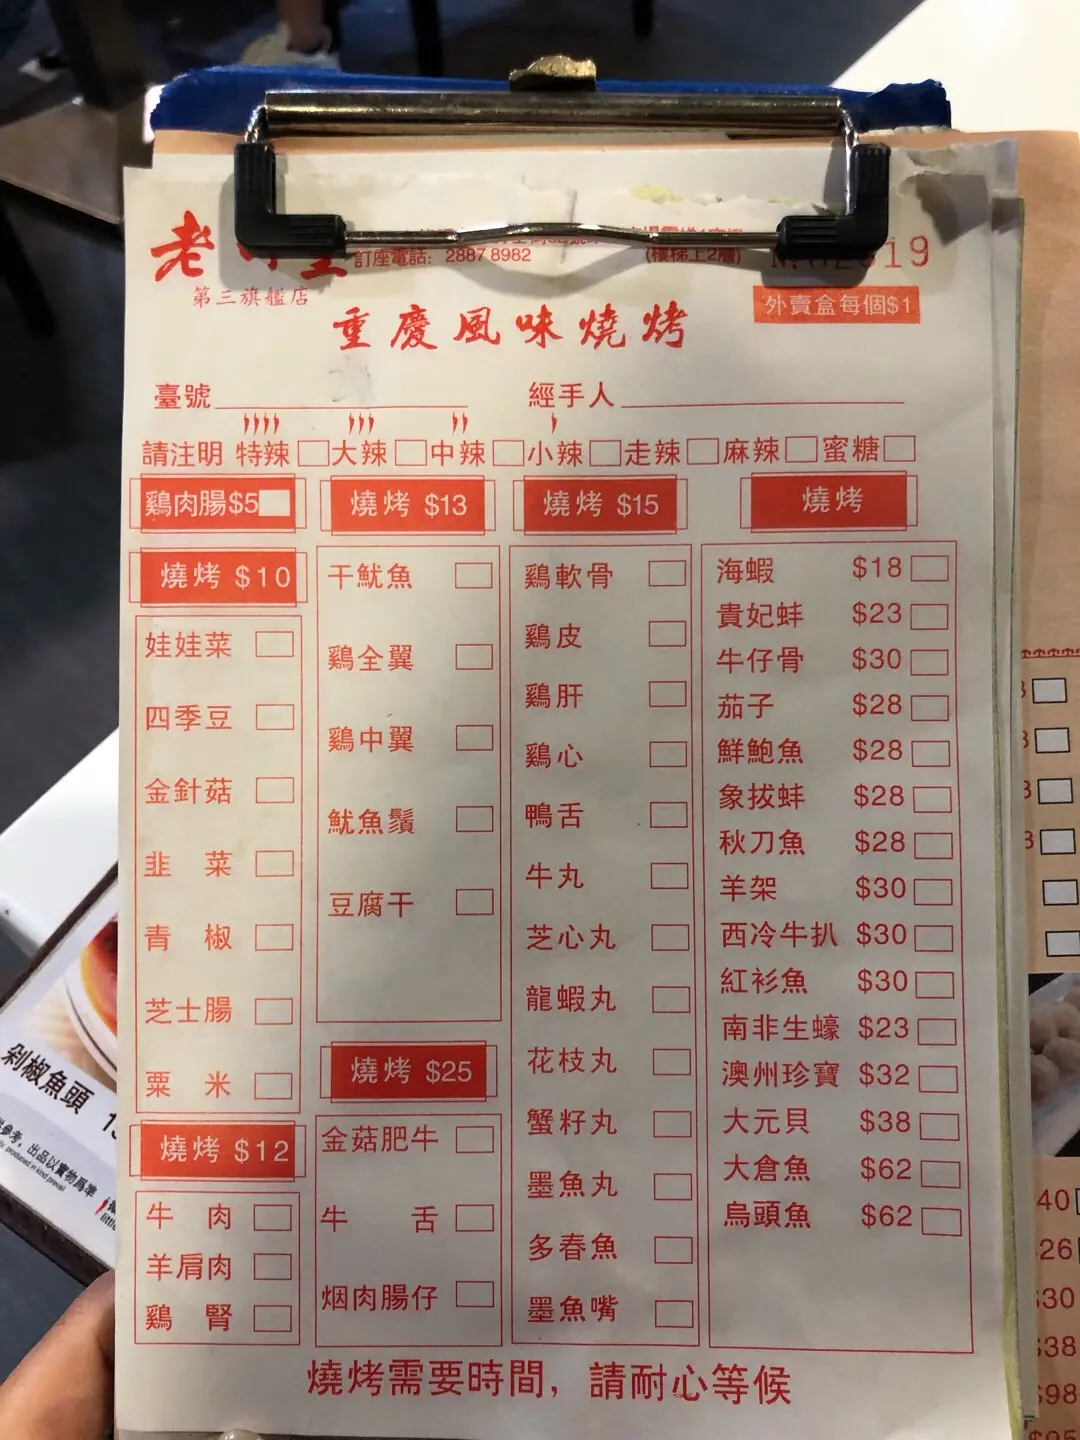 老
訂座電話: 2887 8982
(樓梯上2層)
第三旗艦店
外賣盒每個$1
重慶風味燒烤
臺號
經手人
請注明 特辣 大辣 中辣 小辣 走辣 麻辣 蜜糖
鷄肉腸$5
燒烤 $10
娃娃菜
四季豆
金針菇
韭 菜
青 椒
芝士腸
粟 米
燒烤 $12
牛 肉
羊肩肉
鷄 腎
燒烤 $13
干魷魚
鷄全翼
鷄中翼
魷魚鬚
豆腐干
燒烤 $25
金菇肥牛
牛 舌
烟肉腸仔
燒烤 $15
鷄軟骨
鷄皮
鷄肝
鷄心
鴨舌
牛丸
芝心丸
龍蝦丸
花枝丸
蟹籽丸
墨魚丸
多春魚
墨魚嘴
燒烤
海蝦 $18
貴妃蚌 $23
牛仔骨 $30
茄子 $28
鮮鮑魚 $28
象拔蚌 $28
秋刀魚 $28
羊架 $30
西冷牛扒 $30
紅衫魚 $30
南非生蠔 $23
澳州珍寶 $32
大元貝 $38
大倉魚 $62
烏頭魚 $62
燒烤需要時間，請耐心等候
剁椒魚頭
出品以實物爲準
produced in kind prevail
40
26
$30
$38
$98